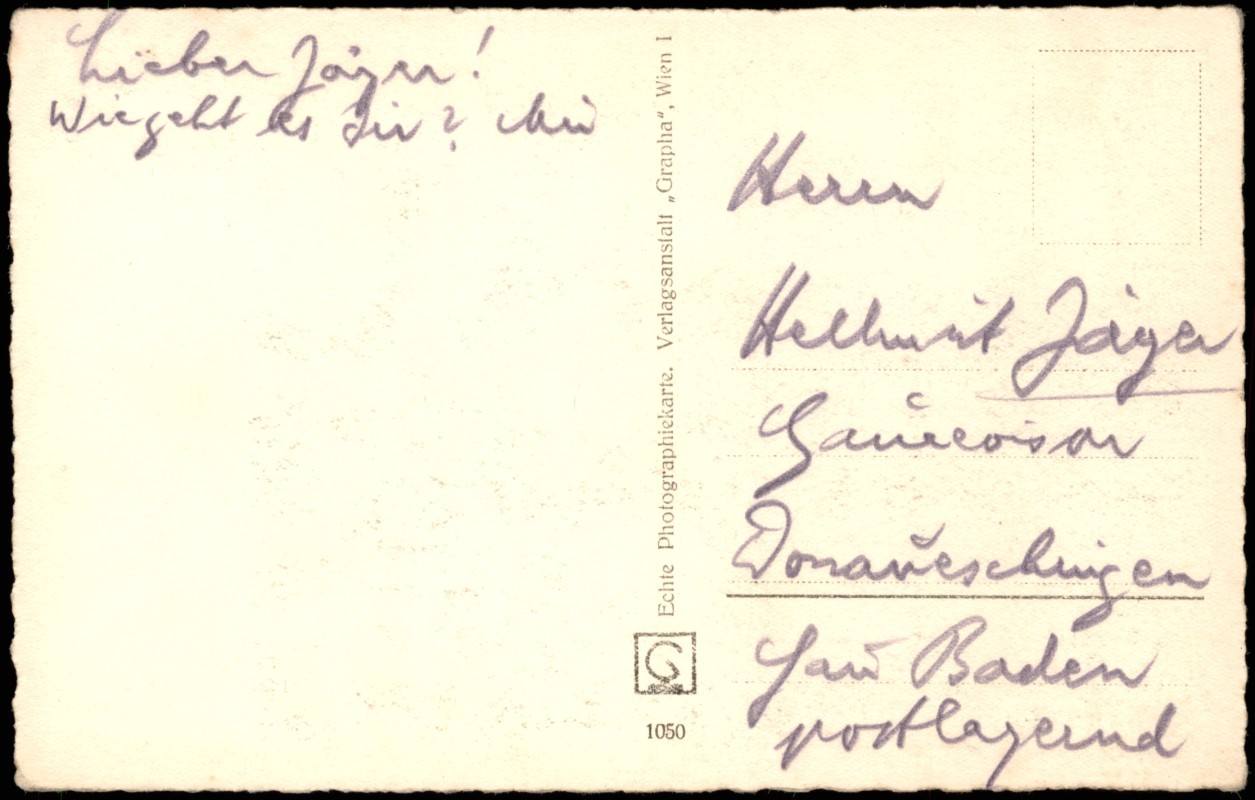 Lieber Jäger!
Wie geht es Dir? Mir
Echte Photographiekarte. Verlagsanstalt „Grapha“, Wien I
G
1050
Herrn
Hellmut Jäger
Donaueschingen
Gau Baden
postlagernd